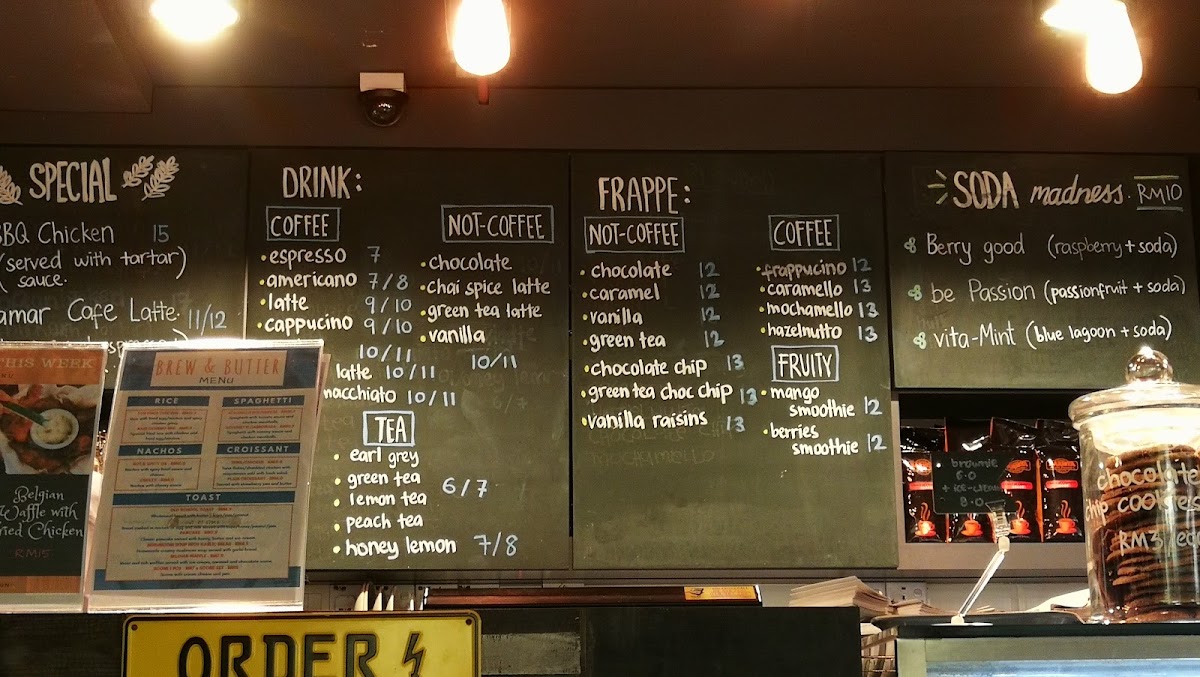 SPECIAL
BBQ Chicken 15
(served with tartar)
( sauce.
amar Cafe Latte. 11/12
DRINK:
COFFEE
espresso 7
americano 7/8
latte 9/10
cappucino 9/10
10/11
latte 10/11
macchiato 10/11
NOT-COFFEE
chocolate
chai spice latte
green tea latte
vanilla
10/11
TEA
earl grey
green tea
lemon tea 6/7
peach tea
honey lemon 7/8
FRAPPE:
NOT-COFFEE
chocolate 12
caramel 12
vanilla 12
green tea 12
chocolate chip 13
green tea choc chip 13
vanilla raisins 13
COFFEE
frappucino 12
caramello 13
mochamello 13
hazelnutto 13
FRUITY
mango
smoothie 12
berries
smoothie 12
SODA madness. RM10
Berry good (raspberry + soda)
be Passion (passionfruit + soda)
vita-Mint (blue lagoon + soda)
THIS WEEK
Belgian
Waffle with
Fried Chicken
RM15
BREW & BUTTER
MENU
RICE
SPAGHETTI
NACHOS
CROISSANT
TOAST
ORDER
brownie
6.0
+ ice-cream
8.0
chocolate
chip cookies
RM3/each